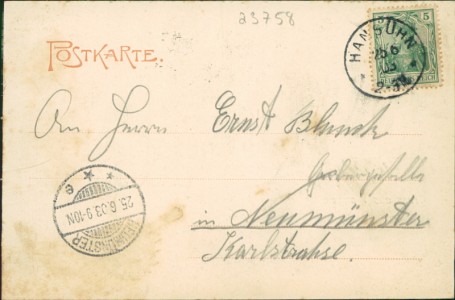 23758
POSTKARTE.
5
HANSÜHN
25 6
03
An Herrn Ernst Blunck
in Neumünster
Karlstraße.
NEUMÜNSTER
25.6.03.9-10N